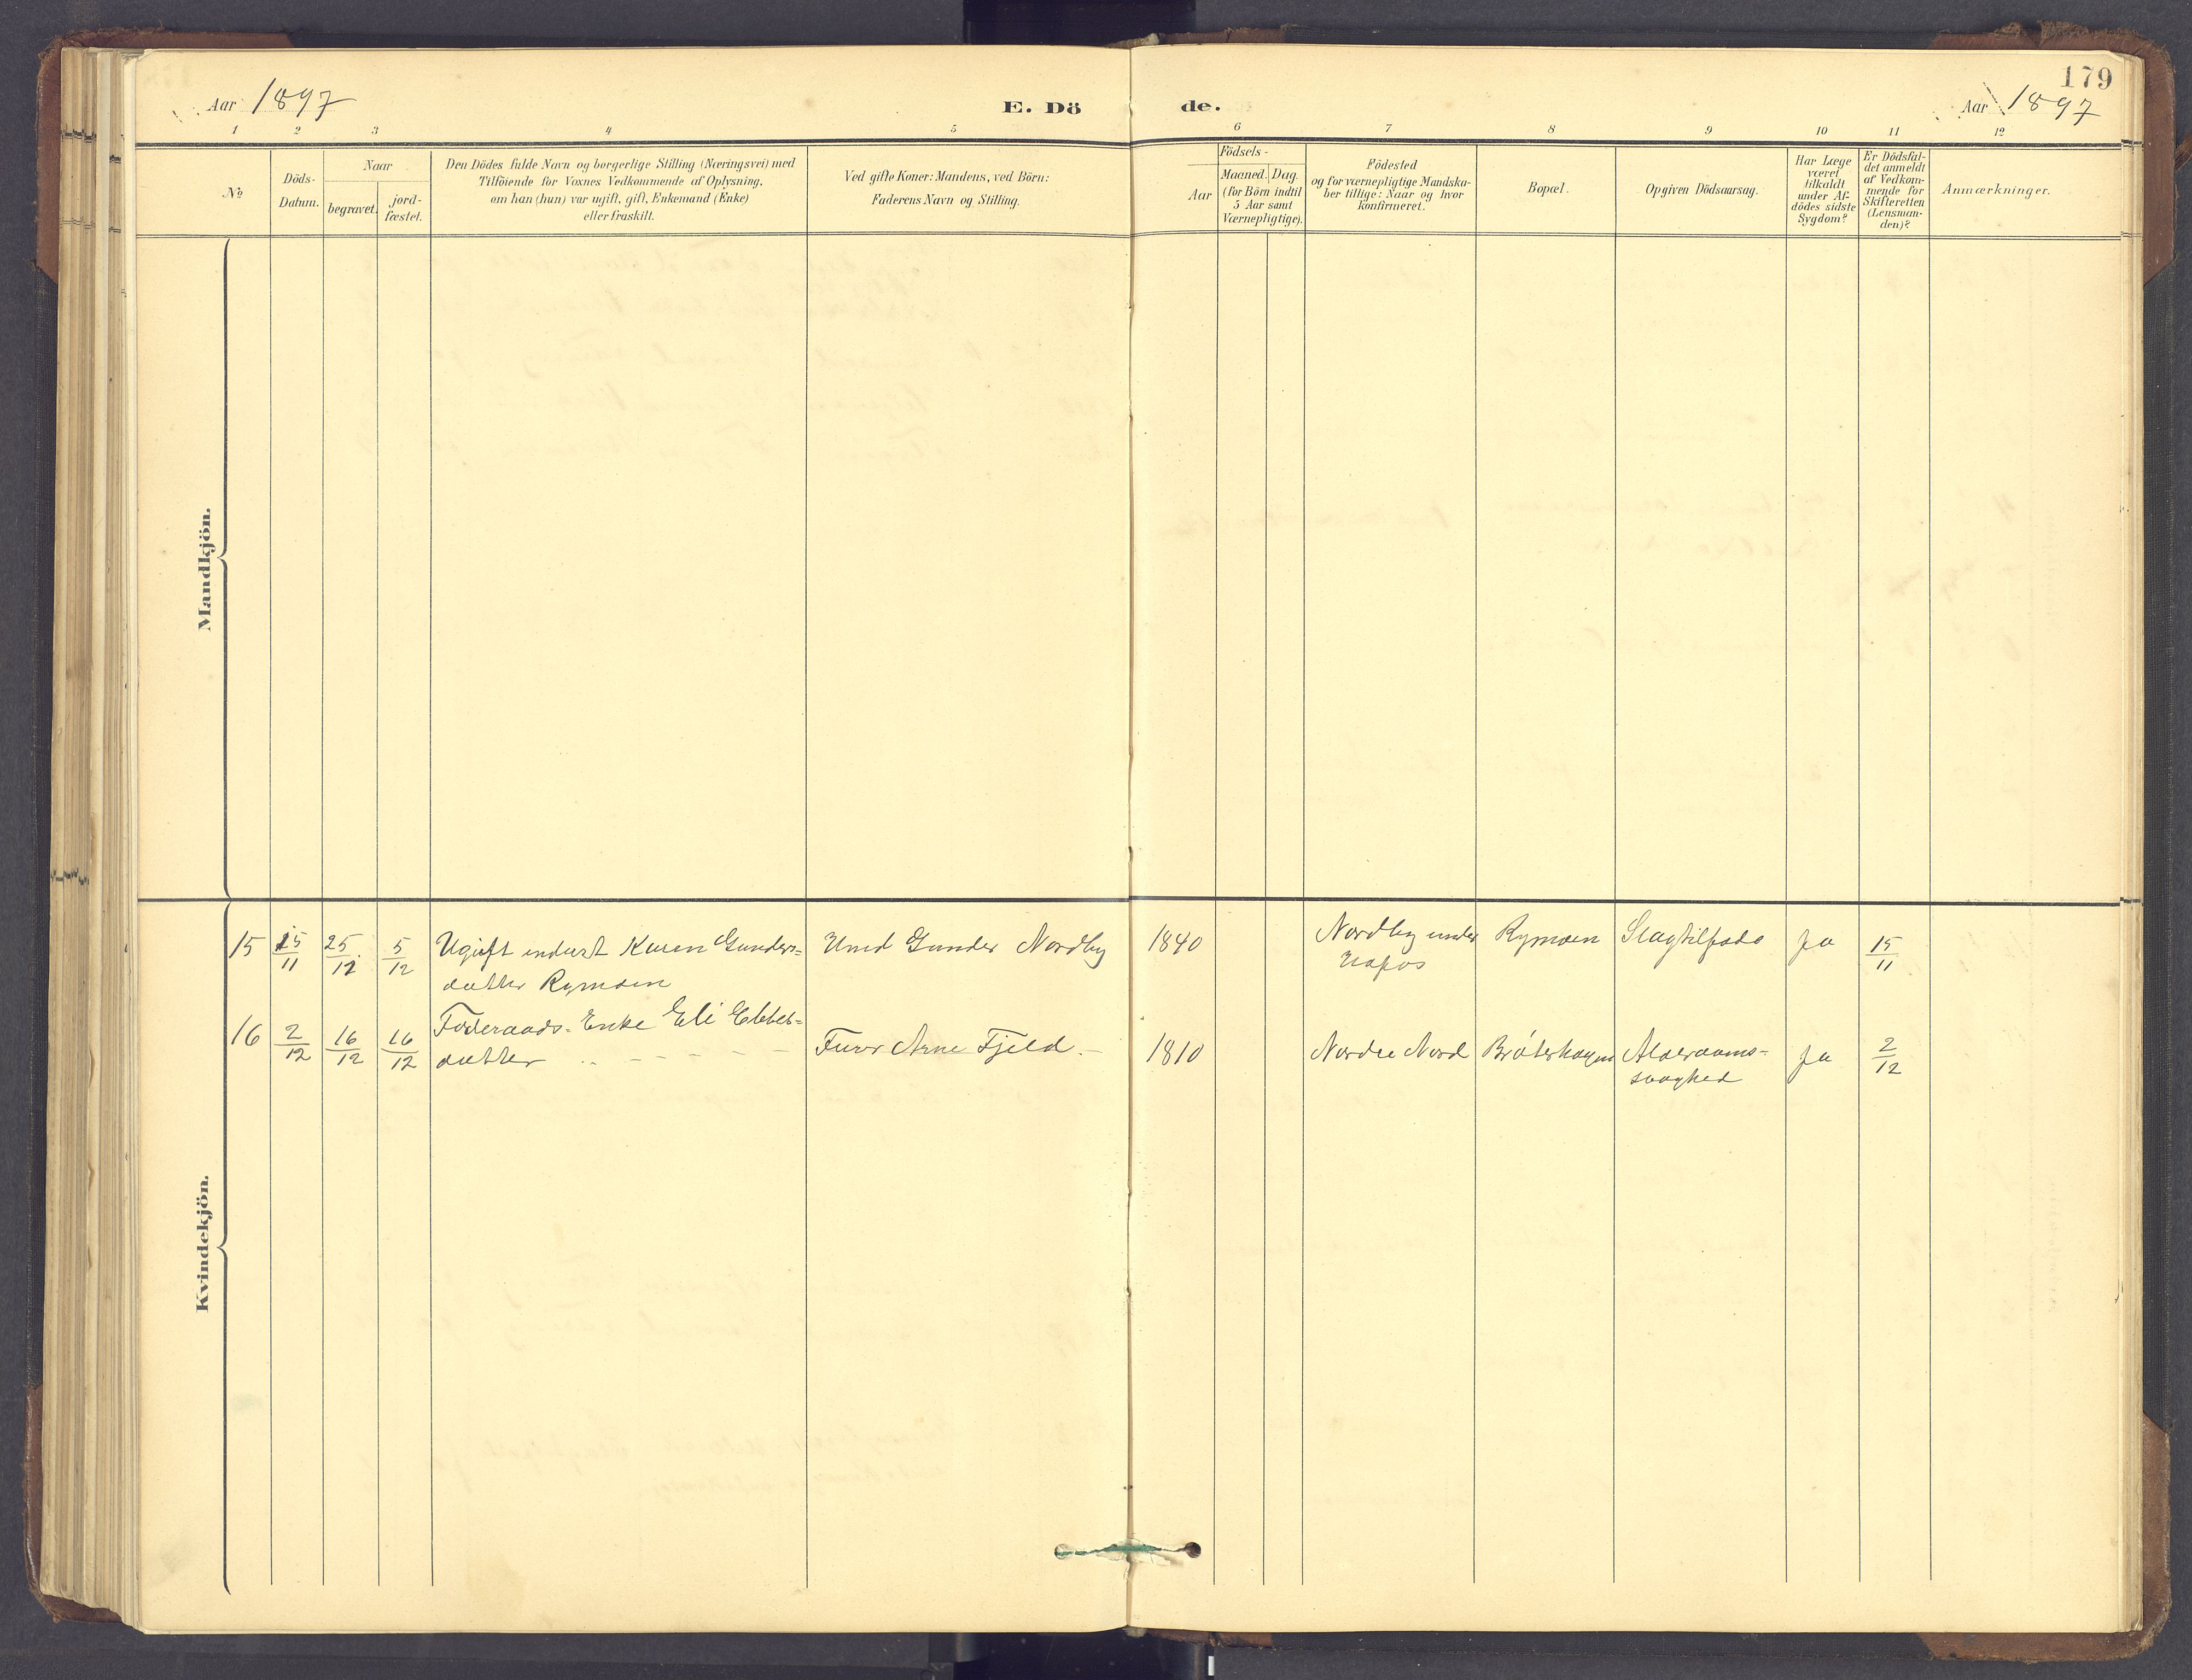 179
Aar 1897
E. Dö
de.
Aar 1897
1 2 3 4 5 6 7 8 9 10 11 12
No
Döds-
Datum.
Naar
begravet.
jord-
fæstet.
Den Dödes fulde Navn og borgerlige Stilling (Næringsvei) med
Tilföiende for Voxnes Vedkommende af Oplysning,
om han (hun) var ugift, gift, Enkemand (Enke)
eller fraskilt.
Ved gifte Koner: Mandens, ved Börn:
Faderens Navn og Stilling.
Födsels-
Aar
Maaned.
Dag.
(for Börn indtil
5 Aar samt
Værnepligtige).
Födested
og for værnepligtige Mandska-
ber tillige: Naar og hvor
konfirmeret.
Bopæl.
Opgiven Dödsaarsag.
Har Læge
været
tilkaldt
under Af-
dödes sidste
Sygdom?
Er Dödsfal-
det anmeldt
af Vedkom-
mende for
Skifteretten
(Lensman-
den)?
Anmærkninger.
Mandkjön.
Kvindekjön.
15 15/11 25/12 5/12 Ugift inderst Karen Gunders=
datter Rymoen
Umd Gunder Nordby 1840 Nordby under
Rymoen Slagtilfælde Ja 15/11
16 2/12 16/12 16/12 Føderaads-Enke Eli Ebbes=
datter
Arne Fjeld. 1810 Nordre Nord Bråterhagen Alderdoms-
svaghed
Ja 2/12